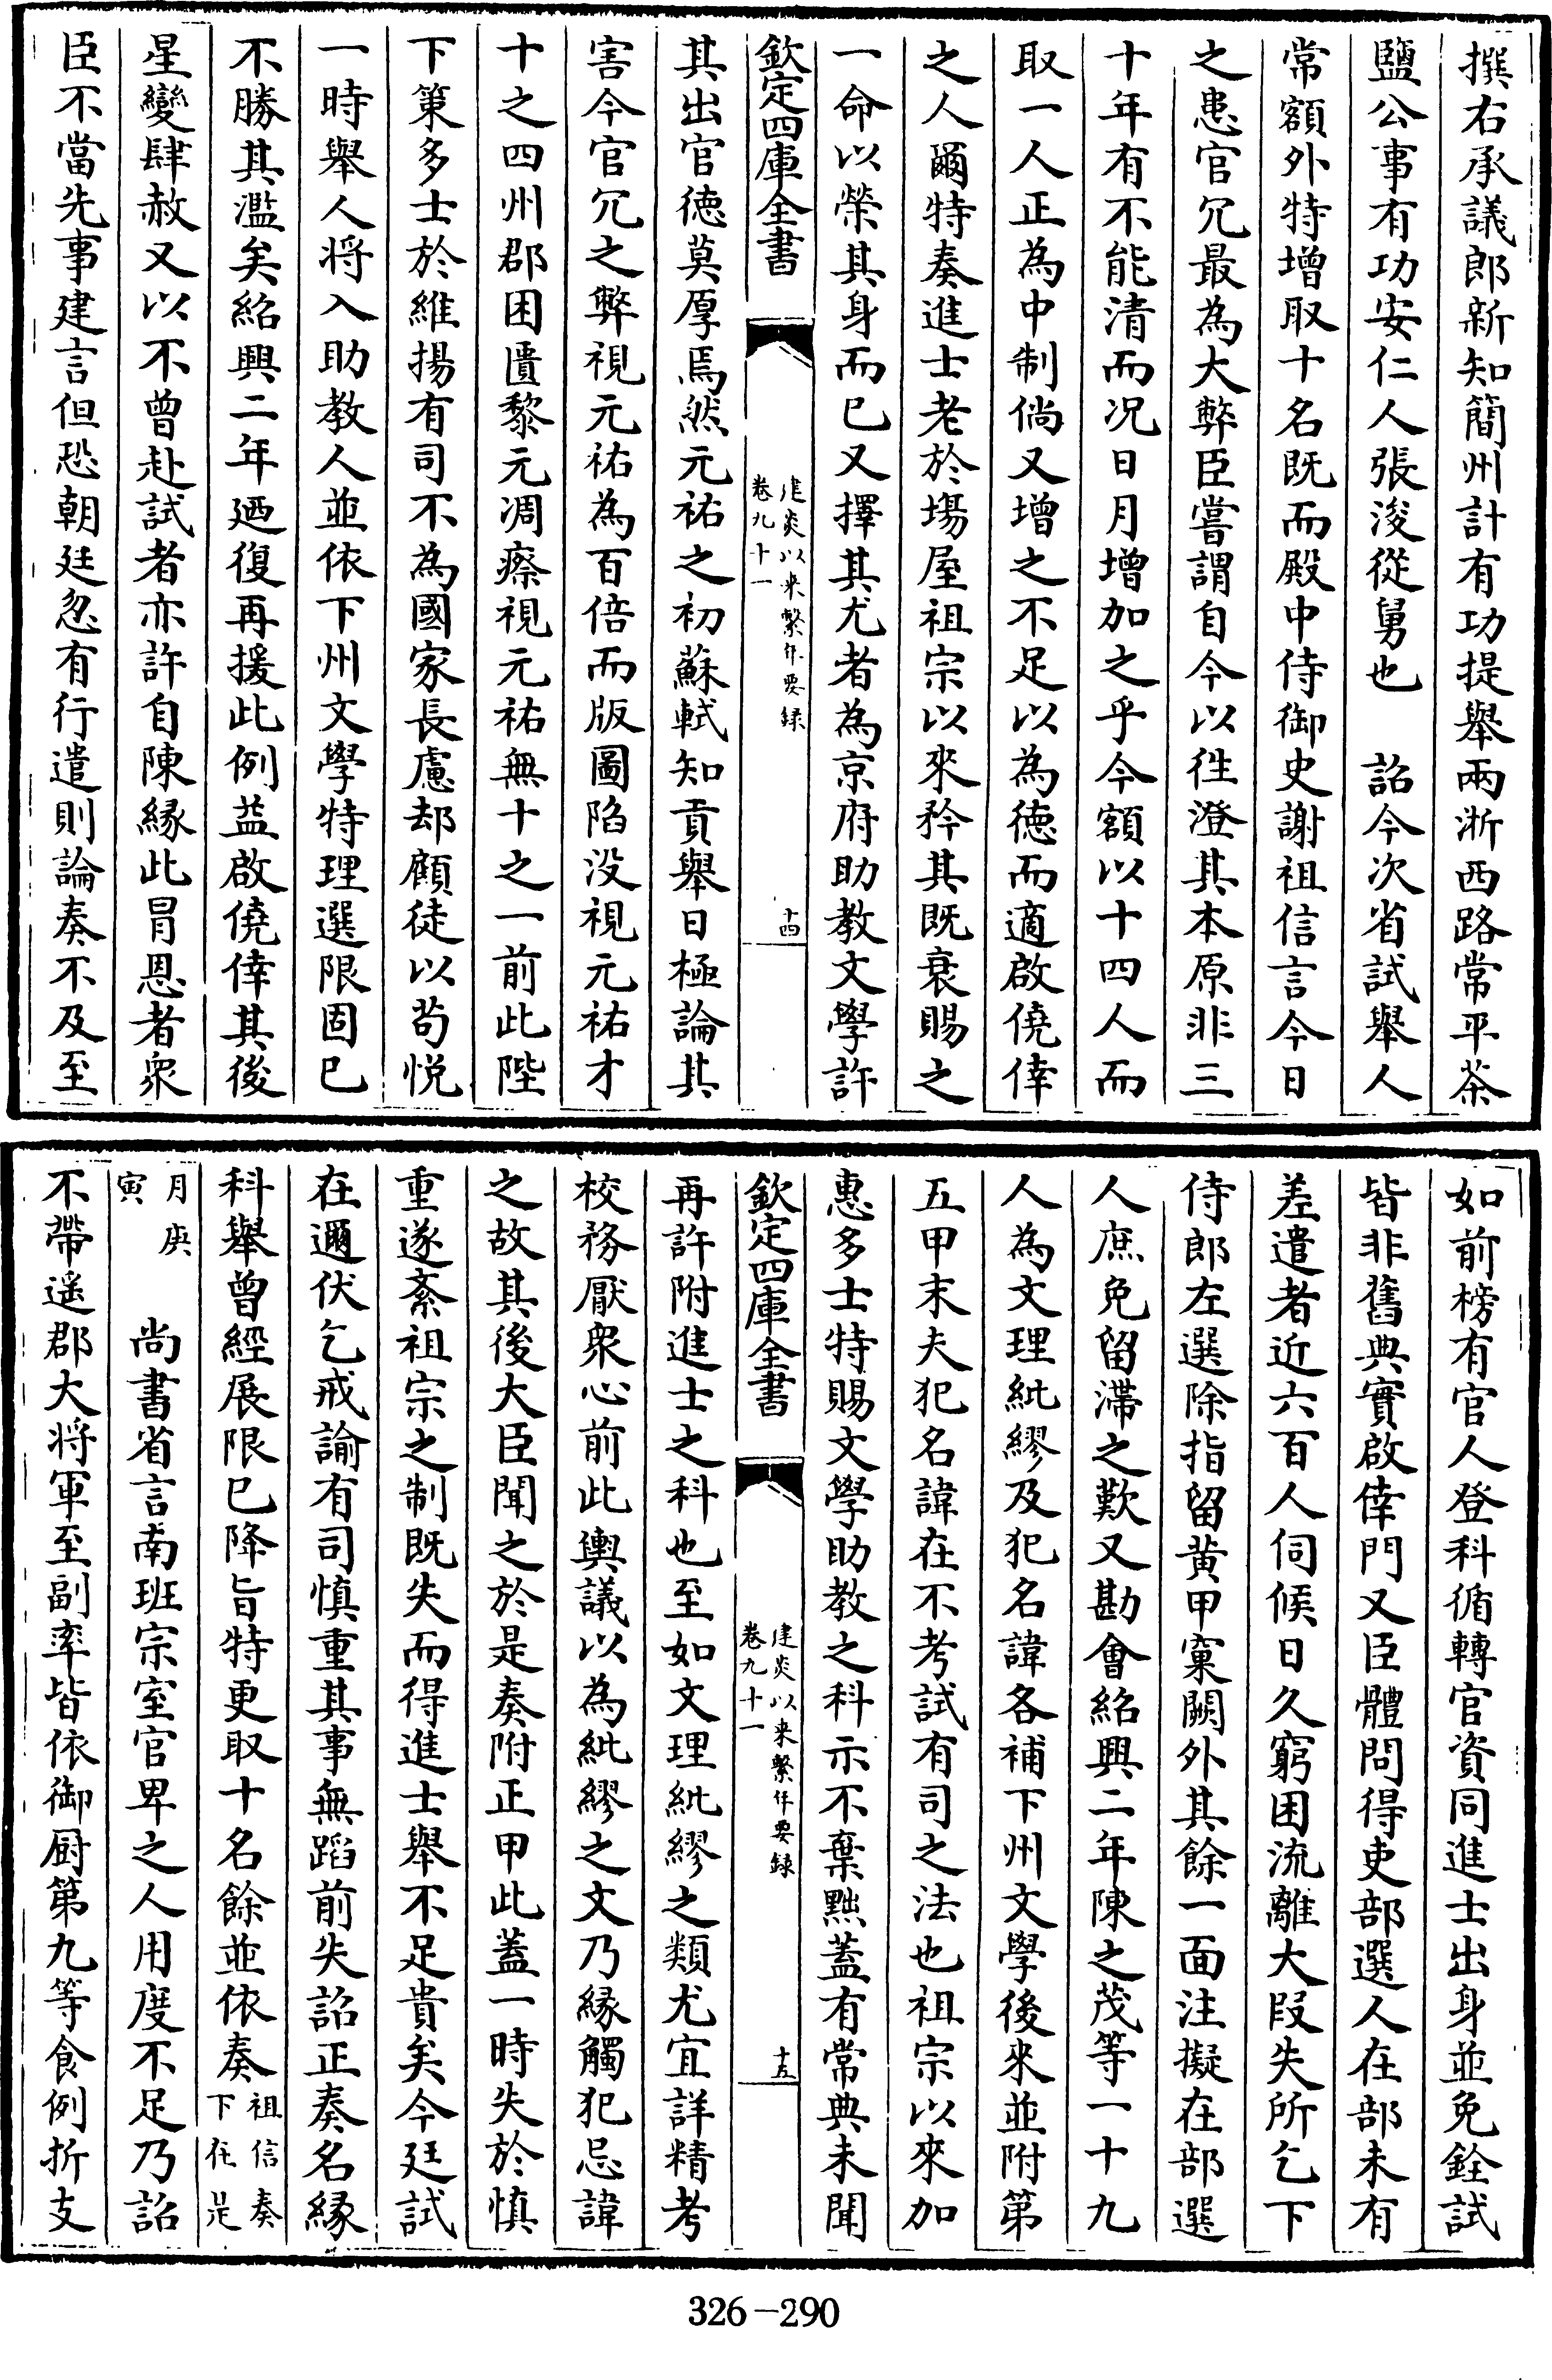 撰右承議郎新知簡州計有功提舉兩浙西路常平茶
鹽公事有功安仁人張浚從舅也　詔今次省試舉人
常額外特增取十名既而殿中侍御史謝祖信言今日
之患官冗最為大弊臣嘗謂自今以徃澄其本原非三
十年有不能清而况日月增加之乎今額以十四人而
取一人正為中制倘又增之不足以為徳而適啟僥倖
之人爾特奏進士老於場屋祖宗以來矜其既衰賜之
一命以榮其身而已又擇其尤者為京府助教文學許
欽定四庫全書
建炎以來繫年要録
卷九十一
十四
其出官徳莫厚焉然元祐之初蘇軾知貢舉日極論其
害今官冗之弊視元祐為百倍而版圖陷没視元祐才
十之四州郡困匱黎元凋瘵視元祐無十之一前此陛
下策多士於維揚有司不為國家長慮却顧徒以苟悦
一時舉人將入助教人並依下州文學特理選限固已
不勝其濫矣紹興二年廼復再援此例益啟僥倖其後
星變肆赦又以不曾赴試者亦許自陳緣此冒恩者衆
臣不當先事建言但恐朝廷忽有行遣則論奏不及至
如前榜有官人登科循轉官資同進士出身並免銓試
皆非舊典實啟倖門又臣體問得吏部選人在部未有
差遣者近六百人伺候日久窮困流離大叚失所乞下
侍郎左選除指留黄甲窠闕外其餘一面注擬在部選
人庶免留滯之歎又勘會紹興二年陳之茂等一十九
人為文理紕繆及犯名諱各補下州文學後來並附第
五甲末夫犯名諱在不考試有司之法也祖宗以來加
惠多士特賜文學助教之科示不棄黜蓋有常典未聞
欽定四庫全書
建炎以來繫年要録
卷九十一
十五
再許附進士之科也至如文理紕繆之類尤宜詳精考
校務厭衆心前此輿議以為紕繆之文乃緣觸犯忌諱
之故其後大臣聞之於是奏附正甲此蓋一時失於慎
重遂紊祖宗之制既失而得進士舉不足貴矣今廷試
在邇伏乞戒諭有司慎重其事無蹈前失詔正奏名緣
科舉曾經展限已降旨特更取十名餘並依奏祖信奏下在是
月庚寅　尚書省言南班宗室官卑之人用度不足乃詔
不帶遥郡大將軍至副率皆依御厨第九等食例折支
326－290